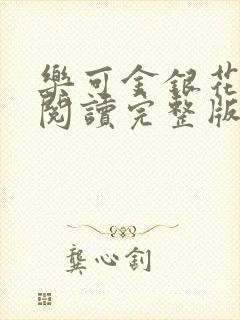 樂可金銀花
閱讀完整版
龔心釗